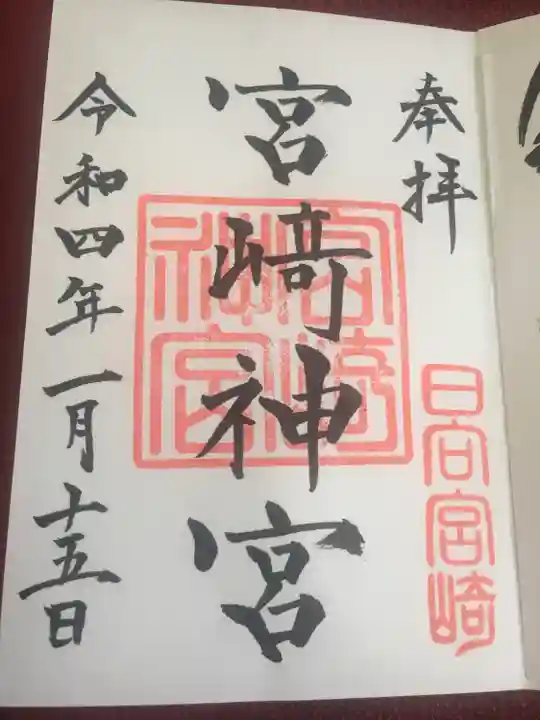 奉拝
日向宮崎
宮崎神宮
宮崎神宮
令和四年一月十五日